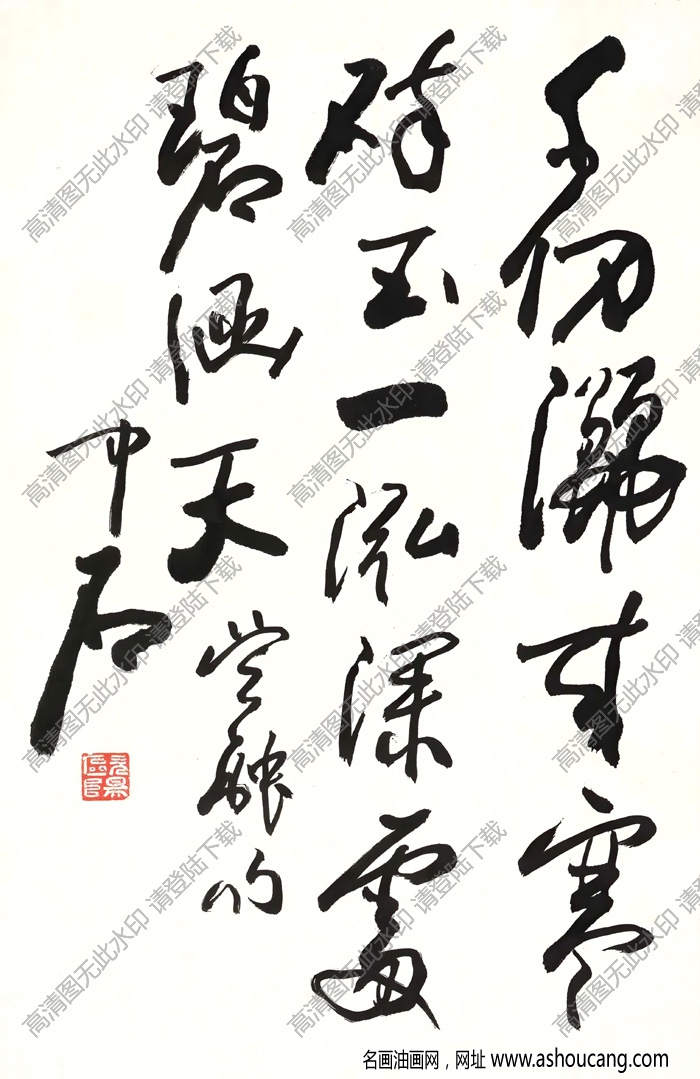 千仞灑来寒
碎玉一泓深處
碧涵天
中石
高清图无此水印 请登陆下载
名画油画网，网址 www.ashoucang.com